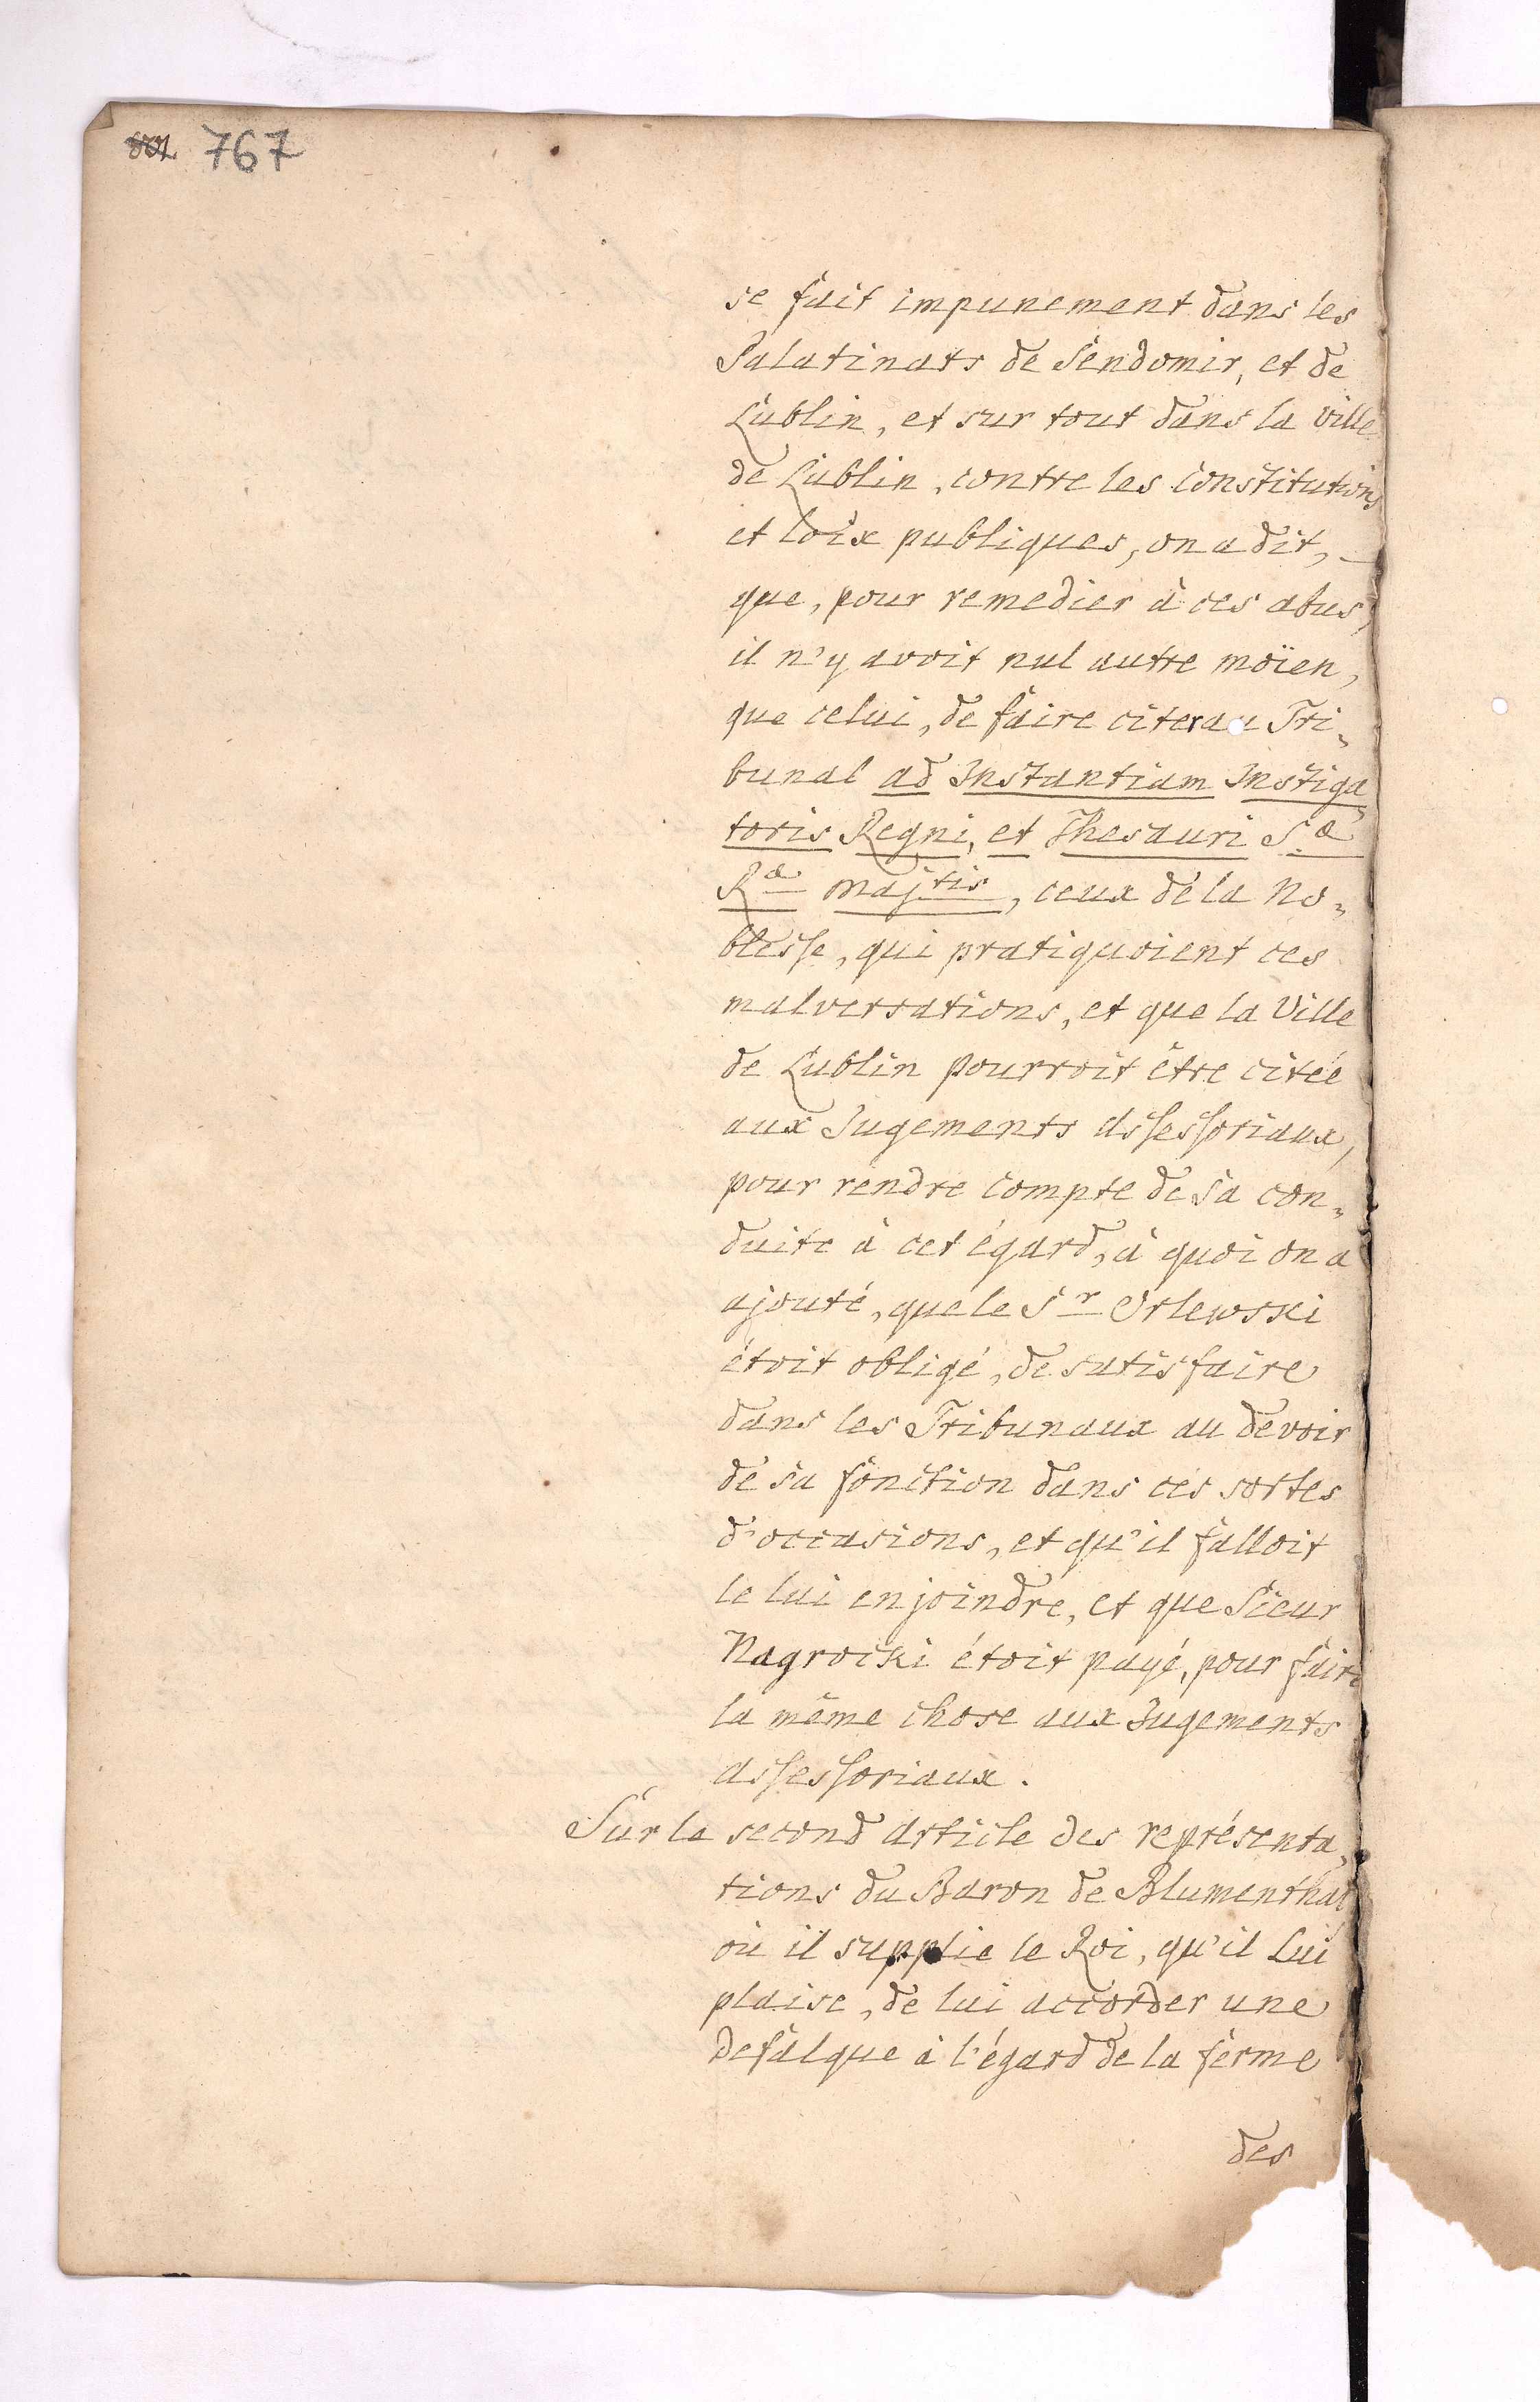 767
se fait impunement dans les
Palatinats de Sendomir, et de
Lublin, et sur tout dans la ville
de Lublin, contre les constitutions
et loix publiques, on a dit,
que, pour remedier à ces abus,
il n'y avoit nul autre moïen,
que celui, de faire citer au Tri„
bunal ad Instantiam Instiga„
toris Regni, et Thesauri S.æ
R.æ Maj.tis, ceux de la No„
blesse, qui pratiquoient ces
malversations, et que la Ville
de Lublin pourroit être citée
aux Jugements Assessoriaux,
pour rendre compte de sa con„
duite à cet égard, à quoi on a
ajouté, que le S.r Orlewski
étoit obligé, de satisfaire
dans les Tribunaux au devoir
de sa fonction dans ces sortes
d'occasions, et qu'il falloit
le lui enjoindre, et que Sieur
Nagrocki étoit payé, pour faire
la même chose aux Jugements
Assessoriaux.
Sur le second Article des représenta„
tions du Baron de Blumenthal
où il supplie le Roi, qu'il Lui
plaise, de lui accorder une
Defalque à l'égard de la ferme
des